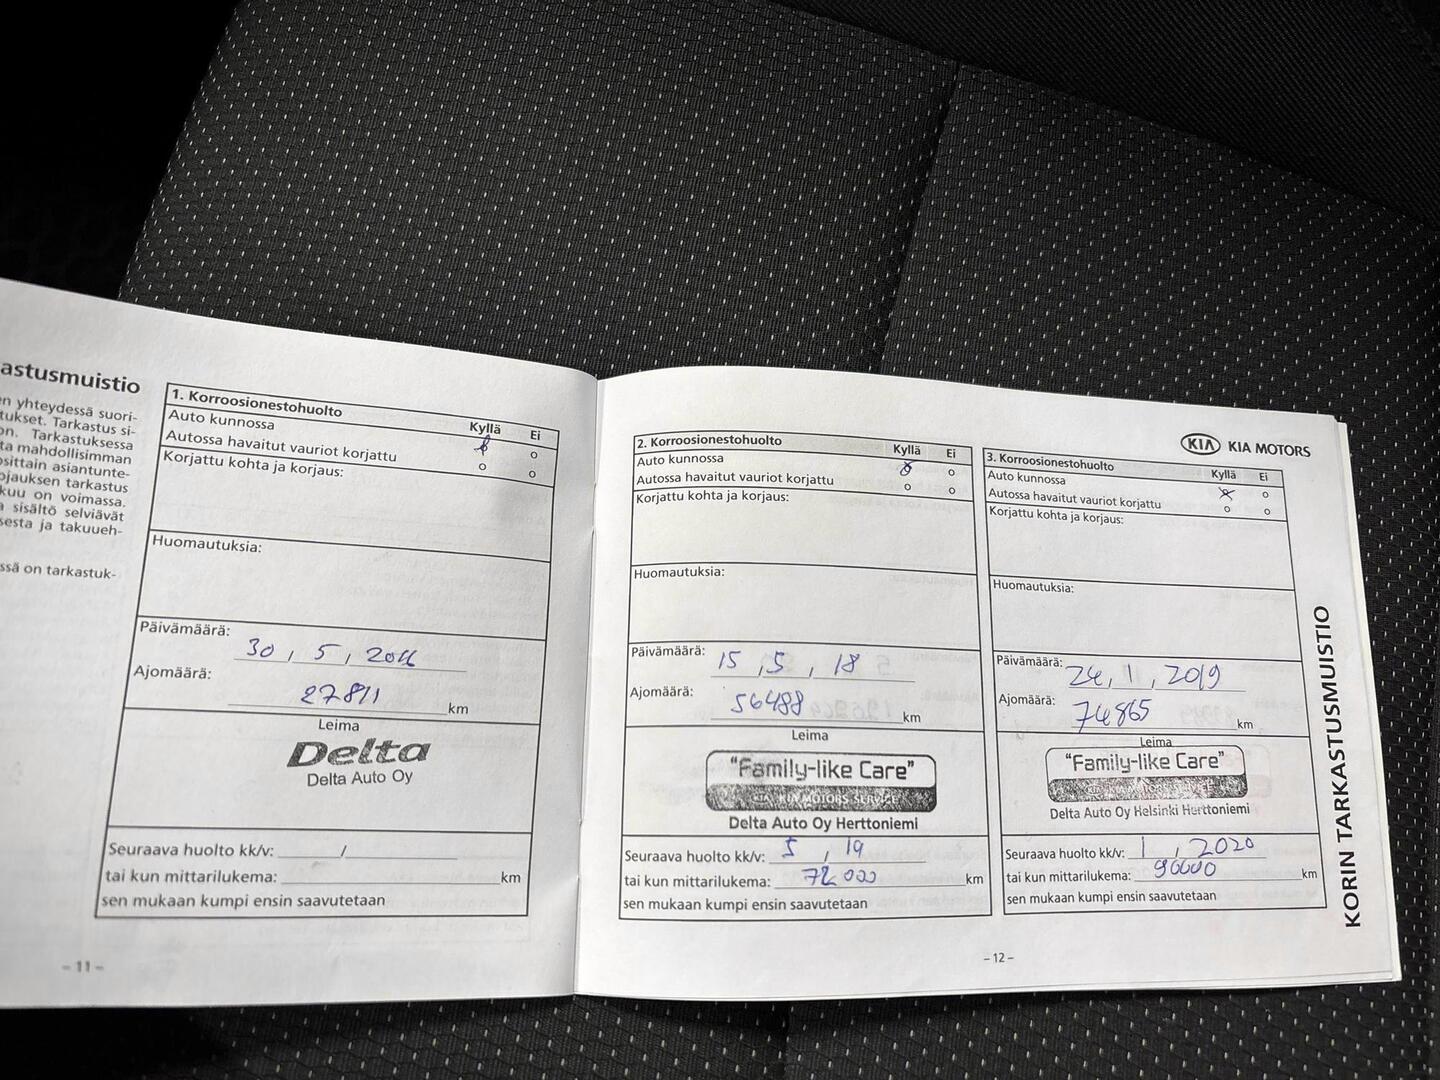 astusmuistio
en yhteydessä suori-
tukset. Tarkastus si-
on. Tarkastuksessa
ta mahdollisimman
osittain asiantunte-
ojauksen tarkastus
kuu on voimassa.
a sisältö selviävät
sesta ja takuueh-
ssä on tarkastuk-
1. Korroosionestohuolto
Auto kunnossa Kyllä Ei
Autossa havaitut vauriot korjattu
Korjattu kohta ja korjaus:
Huomautuksia:
Päivämäärä: 30 , 5 , 2016
Ajomäärä: 27811 km
Leima
Delta
Delta Auto Oy
Seuraava huolto kk/v: /
tai kun mittarilukema: km
sen mukaan kumpi ensin saavutetaan
- 11 -
2. Korroosionestohuolto
Auto kunnossa Kyllä Ei
Autossa havaitut vauriot korjattu
Korjattu kohta ja korjaus:
Huomautuksia:
Päivämäärä: 15 , 5 , 18
Ajomäärä: 56488 km
Leima
"Family-like Care"
KIA KIA MOTORS SERVICE
Delta Auto Oy Herttoniemi
Seuraava huolto kk/v: 5 , 19
tai kun mittarilukema: 72 000 km
sen mukaan kumpi ensin saavutetaan
KIA KIA MOTORS
3. Korroosionestohuolto
Auto kunnossa Kyllä Ei
Autossa havaitut vauriot korjattu
Korjattu kohta ja korjaus:
Huomautuksia:
Päivämäärä: 24 , 1 , 2019
Ajomäärä: 74865 km
Leima
"Family-like Care"
KIA MOTORS SERVICE
Delta Auto Oy Helsinki Herttoniemi
Seuraava huolto kk/v: 1 , 2020
tai kun mittarilukema: 90000 km
sen mukaan kumpi ensin saavutetaan
- 12 -
KORIN TARKASTUSMUISTIO